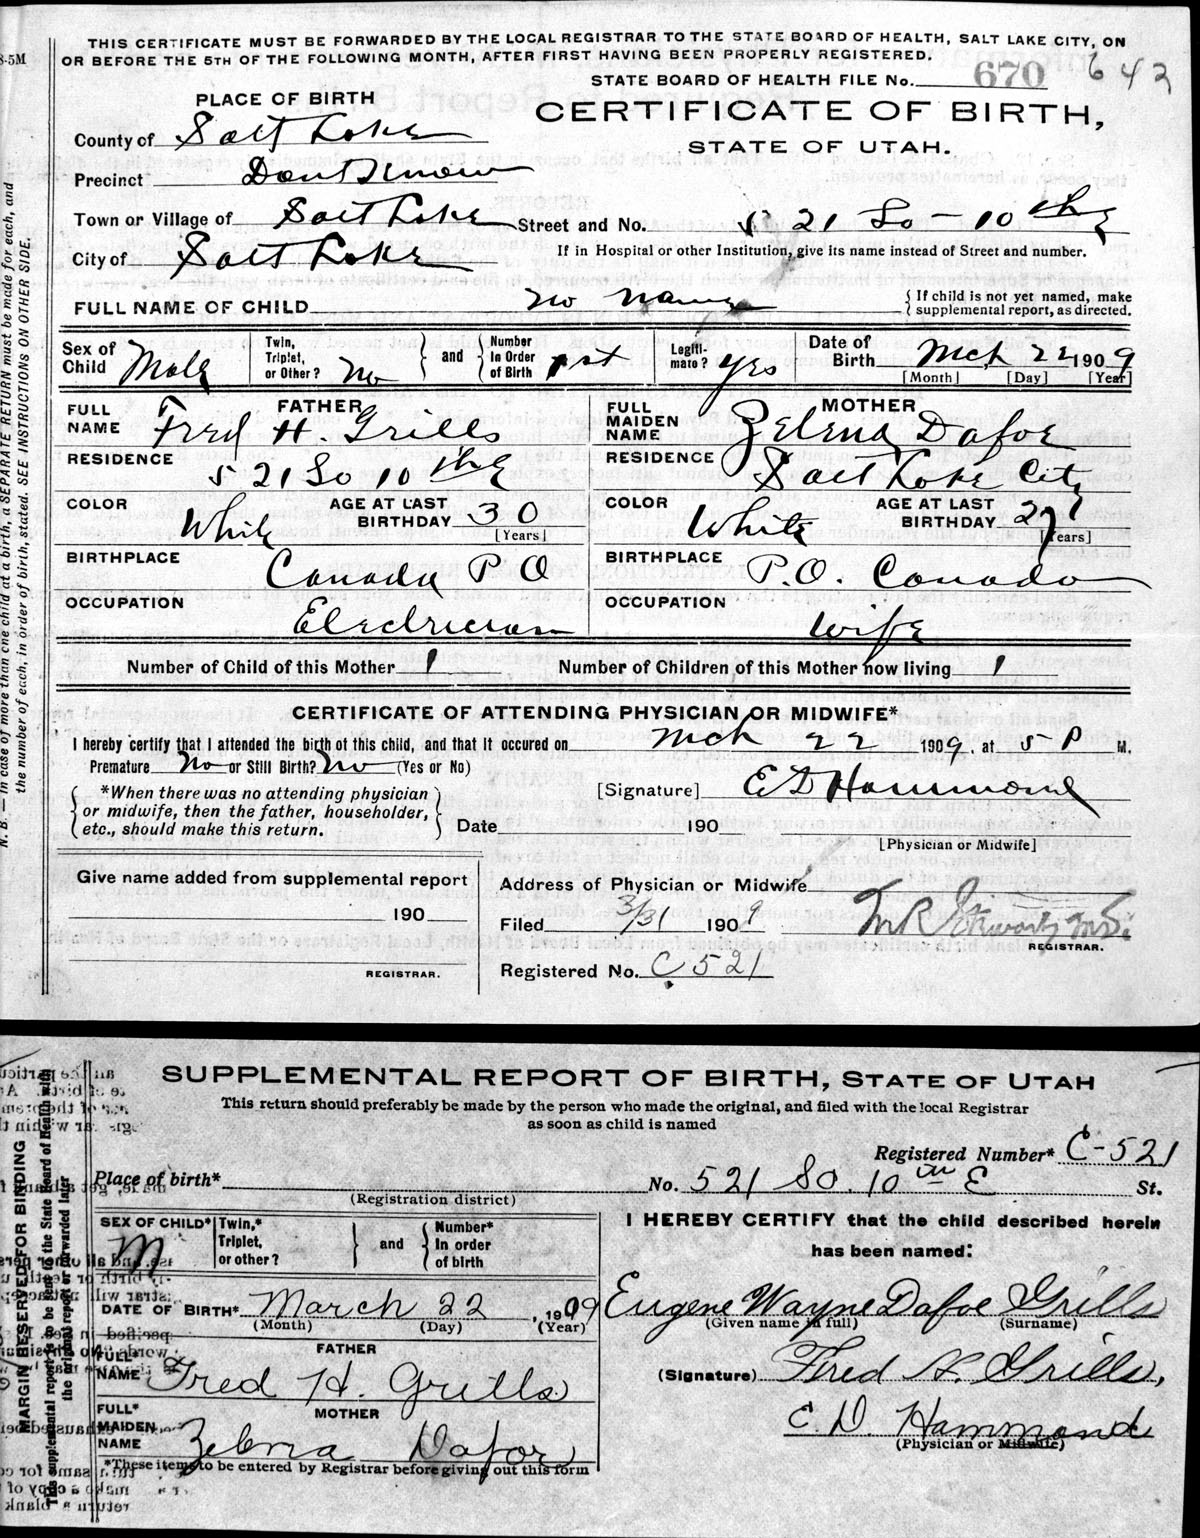 THIS CERTIFICATE MUST BE FORWARDED BY THE LOCAL REGISTRAR TO THE STATE BOARD OF HEALTH, SALT LAKE CITY, ON
OR BEFORE THE 5TH OF THE FOLLOWING MONTH, AFTER FIRST HAVING BEEN PROPERLY REGISTERED.
STATE BOARD OF HEALTH FILE No. 670 642
PLACE OF BIRTH
CERTIFICATE OF BIRTH,
STATE OF UTAH.
County of Salt Lake
Precinct Dont Know
Town or Village of Salt Lake Street and No. 521 So - 10th E
City of Salt Lake If in Hospital or other Institution, give its name instead of Street and number.
FULL NAME OF CHILD no name { If child is not yet named, make
supplemental report, as directed.
Sex of Child Male Twin, Triplet, or Other? No and Number In Order of Birth 1st Legiti-mate? yes Date of Birth Mch 22 1909
[Month] [Day] [Year]
FATHER MOTHER
FULL NAME Fred H. Grills FULL MAIDEN NAME Zelena Dafoe
RESIDENCE 521 So 10th E RESIDENCE Salt Lake City
COLOR White AGE AT LAST BIRTHDAY 30 [Years] COLOR White AGE AT LAST BIRTHDAY 27 [Years]
BIRTHPLACE Canada P O BIRTHPLACE P.O. Canada
OCCUPATION Electrician OCCUPATION wife
Number of Child of this Mother 1 Number of Children of this Mother now living 1
CERTIFICATE OF ATTENDING PHYSICIAN OR MIDWIFE*
I hereby certify that I attended the birth of this child, and that it occured on Mch 22 1909, at 5 P M.
Premature No or Still Birth? No (Yes or No)
*When there was no attending physician
or midwife, then the father, householder,
etc., should make this return.
[Signature] E D Hammond
Date 190
[Physician or Midwife]
Give name added from supplemental report
190
REGISTRAR.
Address of Physician or Midwife
Filed 3/31 1909
REGISTRAR.
Registered No. C 521
N. B.—In case of more than one child at a birth, a SEPARATE RETURN must be made for each, and
the number of each, in order of birth, stated. SEE INSTRUCTIONS ON OTHER SIDE.
SUPPLEMENTAL REPORT OF BIRTH, STATE OF UTAH
This return should preferably be made by the person who made the original, and filed with the local Registrar
as soon as child is named
Registered Number* C-521
Place of birth* No. 521 So. 10th E St.
(Registration district)
SEX OF CHILD* M Twin,* Triplet, or other? and Number* In order of birth
DATE OF BIRTH* March 22, 1909
(Month) (Day) (Year)
FATHER
FULL* NAME Fred H. Grills
MOTHER
FULL* MAIDEN NAME Zelma Dafoe
*These items to be entered by Registrar before giving out this form
I HEREBY CERTIFY that the child described herein
has been named:
Eugene Wayne Dafoe Grills
(Given name in full) (Surname)
(Signature) Fred H. Grills,
E. D. Hammond
(Physician or Midwife)
MARGIN RESERVED FOR BINDING
This supplemental report is to be sent to the State Board of Health with
the original report or forwarded later